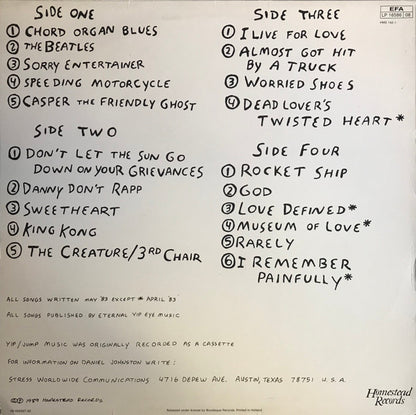 SIDE ONE
① CHORD ORGAN BLUES
② THE BEATLES
③ SORRY ENTERTAINER
④ SPEEDING MOTORCYCLE
⑤ CASPER THE FRIENDLY GHOST
SIDE TWO
① DON'T LET THE SUN GO
DOWN ON YOUR GRIEVANCES
② DANNY DON'T RAPP
③ SWEETHEART
④ KING KONG
⑤ THE CREATURE/3RD CHAIR
SIDE THREE
① I LIVE FOR LOVE
② ALMOST GOT HIT
BY A TRUCK
③ WORRIED SHOES
④ DEAD LOVER'S
TWISTED HEART*
SIDE FOUR
① ROCKET SHIP
② GOD
③ LOVE DEFINED*
④ MUSEUM OF LOVE*
⑤ RARELY
⑥ I REMEMBER
PAINFULLY*
EFA
LP 18586 08
ALL SONGS WRITTEN MAY '83 EXCEPT * APRIL '83
ALL SONGS PUBLISHED BY ETERNAL YIP EYE MUSIC
YIP/JUMP MUSIC WAS ORIGINALLY RECORDED AS A CASSETTE
FOR INFORMATION ON DANIEL JOHNSTON WRITE:
STRESS WORLDWIDE COMMUNICATIONS 4716 DEPEW AVE. AUSTIN, TEXAS 78751 U.S.A.
© ℗ 1989 HOMESTEAD RECORDS
Homestead
Records